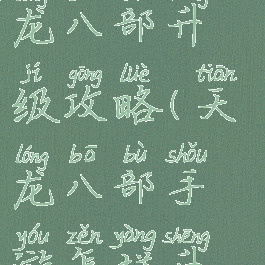 龙八部升
jí gōng lüè tiān
级攻略(天
lóng bā bù shǒu
龙八部手
yóu zěn yàng shēng